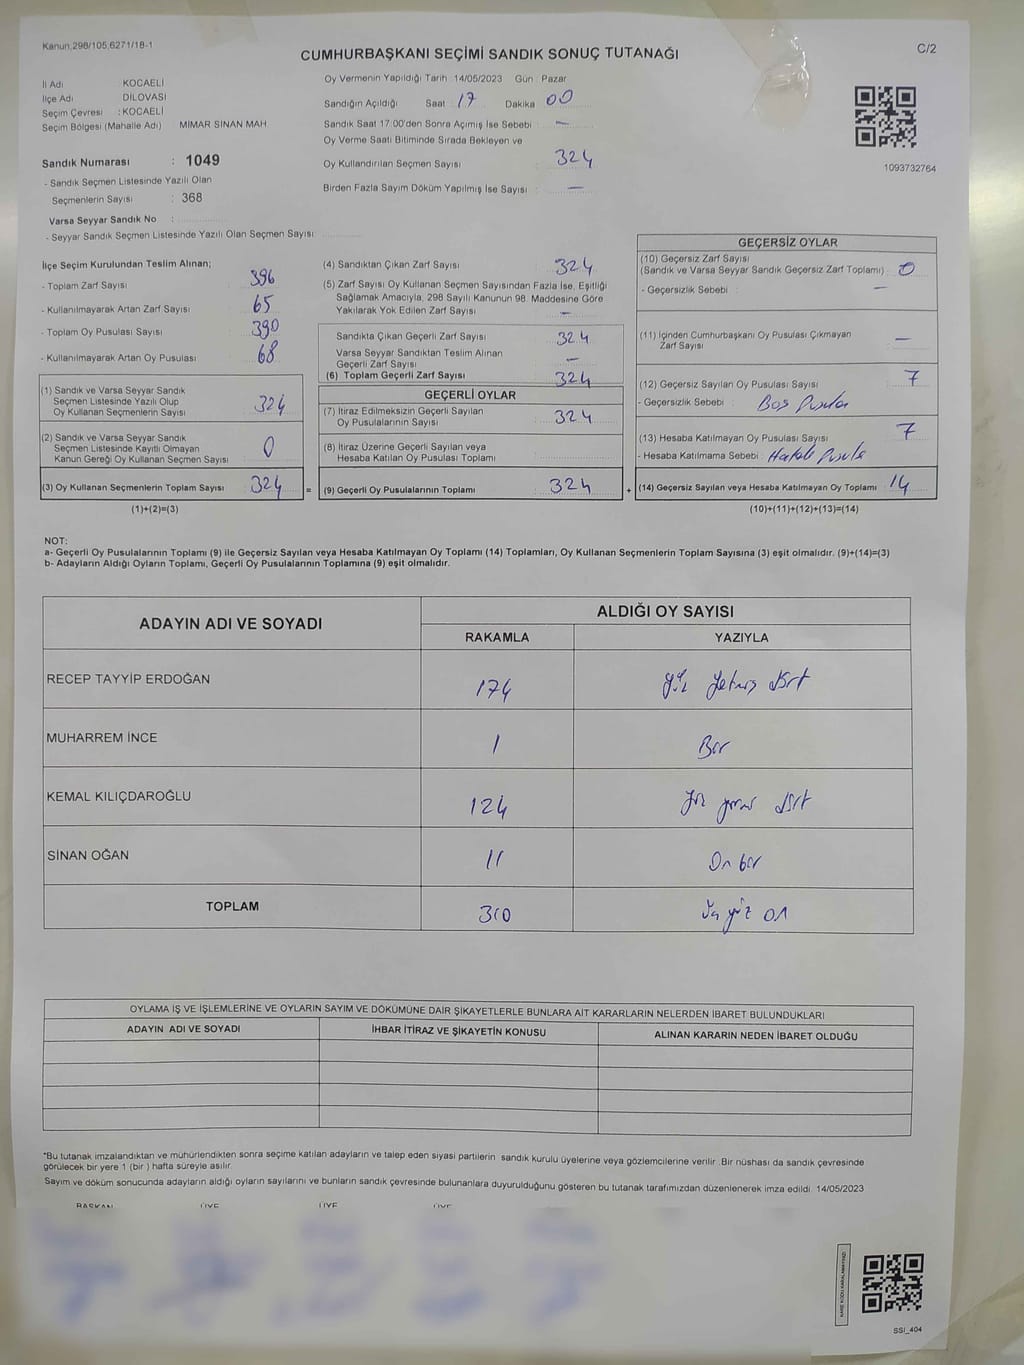 Kanun;298/105,6271/18-1
C/2
CUMHURBAŞKANI SEÇİMİ SANDIK SONUÇ TUTANAĞI
İl Adı KOCAELİ
İlçe Adı DİLOVASI
Seçim Çevresi : KOCAELİ
Seçim Bölgesi (Mahalle Adı) MİMAR SİNAN MAH.
Sandık Numarası : 1049
- Sandık Seçmen Listesinde Yazılı Olan
Seçmenlerin Sayısı : 368
Varsa Seyyar Sandık No :
- Seyyar Sandık Seçmen Listesinde Yazılı Olan Seçmen Sayısı:
Oy Vermenin Yapıldığı Tarih : 14/05/2023 Gün : Pazar
Sandığın Açıldığı Saat 17 Dakika 00
Sandık Saat 17:00'den Sonra Açımış İse Sebebi : —
Oy Verme Saati Bitiminde Sırada Bekleyen ve
Oy Kullandırılan Seçmen Sayısı : 324
Birden Fazla Sayım Döküm Yapılmış İse Sayısı : —
1093732764
İlçe Seçim Kurulundan Teslim Alınan;
- Toplam Zarf Sayısı : 396
- Kullanılmayarak Artan Zarf Sayısı : 65
- Toplam Oy Pusulası Sayısı : 390
- Kullanılmayarak Artan Oy Pusulası : 68
(1) Sandık ve Varsa Seyyar Sandık
Seçmen Listesinde Yazılı Olup
Oy Kullanan Seçmenlerin Sayısı : 324
(2) Sandık ve Varsa Seyyar Sandık
Seçmen Listesinde Kayıtlı Olmayan
Kanun Gereği Oy Kullanan Seçmen Sayısı : 0
(3) Oy Kullanan Seçmenlerin Toplam Sayısı : 324 =
(1)+(2)=(3)
(4) Sandıktan Çıkan Zarf Sayısı : 324
(5) Zarf Sayısı Oy Kullanan Seçmen Sayısından Fazla İse, Eşitliği
Sağlamak Amacıyla, 298 Sayılı Kanunun 98. Maddesine Göre
Yakılarak Yok Edilen Zarf Sayısı : —
Sandıkta Çıkan Geçerli Zarf Sayısı : 324
Varsa Seyyar Sandıktan Teslim Alınan
Geçerli Zarf Sayısı : —
(6) Toplam Geçerli Zarf Sayısı : 324
GEÇERLİ OYLAR
(7) İtiraz Edilmeksizin Geçerli Sayılan
Oy Pusulalarının Sayısı : 324
(8) İtiraz Üzerine Geçerli Sayılan veya
Hesaba Katılan Oy Pusulası Toplamı :
(9) Geçerli Oy Pusulalarının Toplamı : 324 +
GEÇERSİZ OYLAR
(10) Geçersiz Zarf Sayısı
(Sandık ve Varsa Seyyar Sandık Geçersiz Zarf Toplamı) : 0
- Geçersizlik Sebebi : —
(11) İçinden Cumhurbaşkanı Oy Pusulası Çıkmayan
Zarf Sayısı : —
(12) Geçersiz Sayılan Oy Pusulası Sayısı : 7
- Geçersizlik Sebebi : Boş Pusula
(13) Hesaba Katılmayan Oy Pusulası Sayısı : 7
- Hesaba Katılmama Sebebi : Hatalı Pusula
(14) Geçersiz Sayılan veya Hesaba Katılmayan Oy Toplamı : 14
(10)+(11)+(12)+(13)=(14)
NOT:
a- Geçerli Oy Pusulalarının Toplamı (9) ile Geçersiz Sayılan veya Hesaba Katılmayan Oy Toplamı (14) Toplamları, Oy Kullanan Seçmenlerin Toplam Sayısına (3) eşit olmalıdır. (9)+(14)=(3)
b- Adayların Aldığı Oyların Toplamı, Geçerli Oy Pusulalarının Toplamına (9) eşit olmalıdır.
ADAYIN ADI VE SOYADI
ALDIĞI OY SAYISI
RAKAMLA YAZIYLA
RECEP TAYYİP ERDOĞAN 174 yüz yetmiş dört
MUHARREM İNCE 1 Bir
KEMAL KILIÇDAROĞLU 124 yüz yirmi dört
SİNAN OĞAN 11 On bir
TOPLAM 310 üç yüz on
OYLAMA İŞ VE İŞLEMLERİNE VE OYLARIN SAYIM VE DÖKÜMÜNE DAİR ŞİKAYETLERLE BUNLARA AİT KARARLARIN NELERDEN İBARET BULUNDUKLARI
ADAYIN ADI VE SOYADI İHBAR İTİRAZ VE ŞİKAYETİN KONUSU ALINAN KARARIN NEDEN İBARET OLDUĞU
*Bu tutanak imzalandıktan ve mühürlendikten sonra seçime katılan adayların ve talep eden siyasi partilerin sandık kurulu üyelerine veya gözlemcilerine verilir. Bir nüshası da sandık çevresinde
görülecek bir yere 1 (bir ) hafta süreyle asılır.
Sayım ve döküm sonucunda adayların aldığı oyların sayılarını ve bunların sandık çevresinde bulunanlara duyurulduğunu gösteren bu tutanak tarafımızdan düzenlenerek imza edildi. 14/05/2023
BAŞKAN ÜYE ÜYE ÜYE
SSI_404